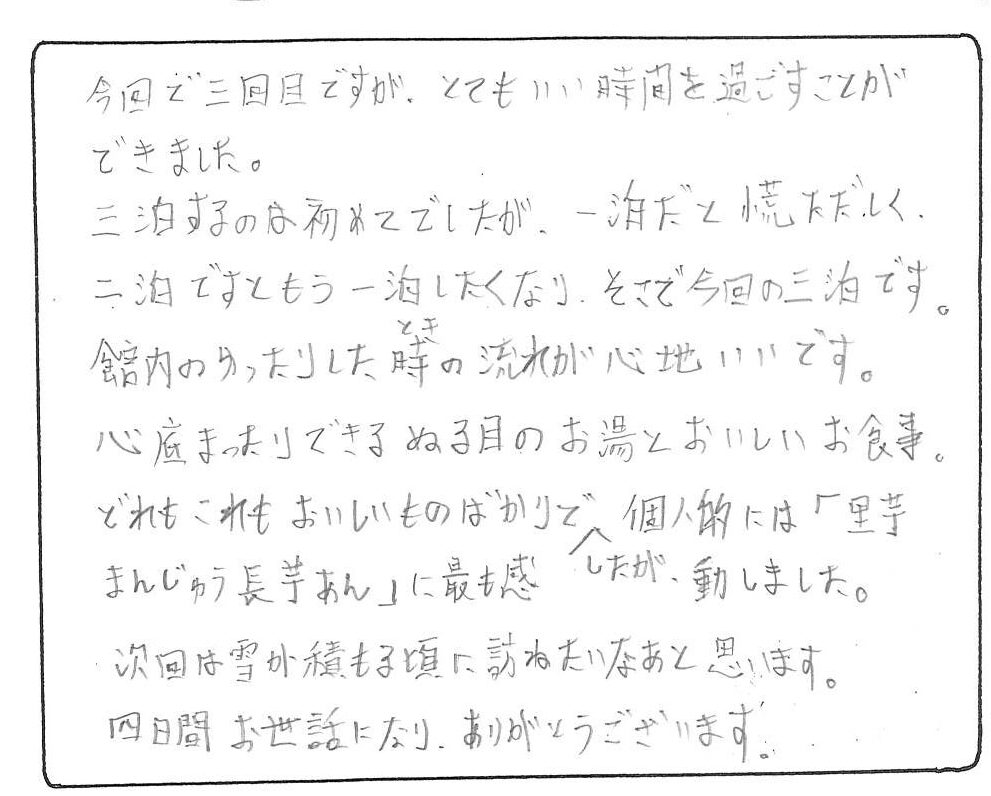 今回で三回目ですが、とてもいい時間を過ごすことが
できました。
三泊するのは初めてでしたが、一泊だと慌ただしく、
二泊ですともう一泊したくなり、そこで今回の三泊です。
館内のゆったりした時の流れが心地いいです。
とき
心底まったりできるぬる目のお湯とおいしいお食事。
どれもこれもおいしいものばかりで 個人的には「里芋
したが、
まんじゅう長芋あん」に最も感動しました。
次回は雪が積もる頃に訪ねたいなあと思います。
四日間お世話になり、ありがとうございます。